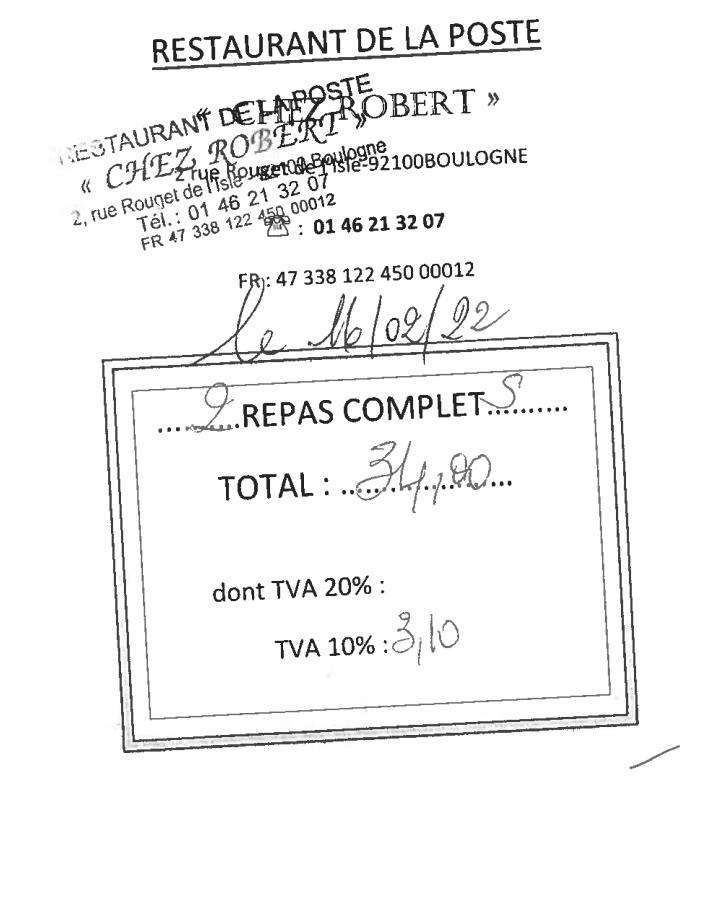 RESTAURANT DE LA POSTE
« CHEZ ROBERT »
2 rue Rouget de l'Isle-92100BOULOGNE
: 01 46 21 32 07
FR : 47 338 122 450 00012
RESTAURANT DE LA POSTE
« CHEZ ROBERT »
2, rue Rouget de l'Isle - 92100 Boulogne
Tél. : 01 46 21 32 07
FR 47 338 122 450 00012
le 16/02/22
.....2.....REPAS COMPLETS..........
TOTAL : ..34,00...
dont TVA 20% :
TVA 10% : 3,10